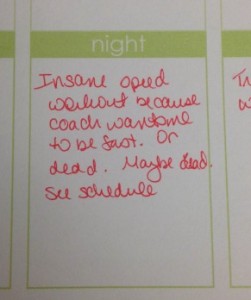 night
Insane speed
workout because
coach wants me
to be fast. Or
dead. Maybe dead.
See schedule